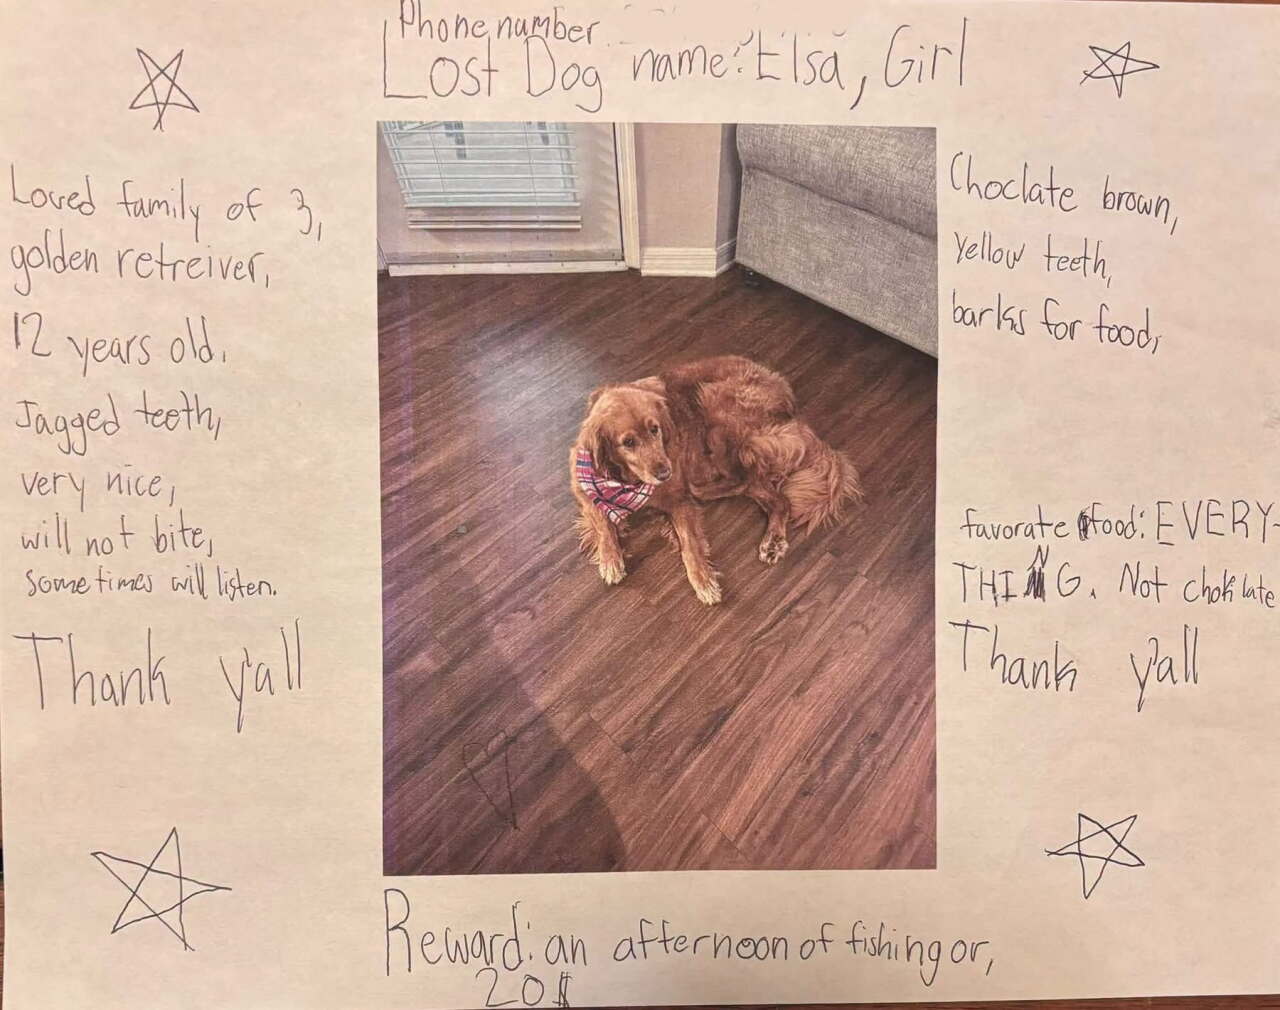 Phone number
Lost Dog name: Elsa, Girl
Loved family of 3,
golden retreiver,
12 years old.
Jagged teeth,
very nice,
will not bite,
some times will listen.
Thank y'all
Choclate brown,
Yellow teeth,
barks for food,
favorate food: EVERY-
THING. Not choklate
Thank y'all
Reward: an afternoon of fishing or,
20$